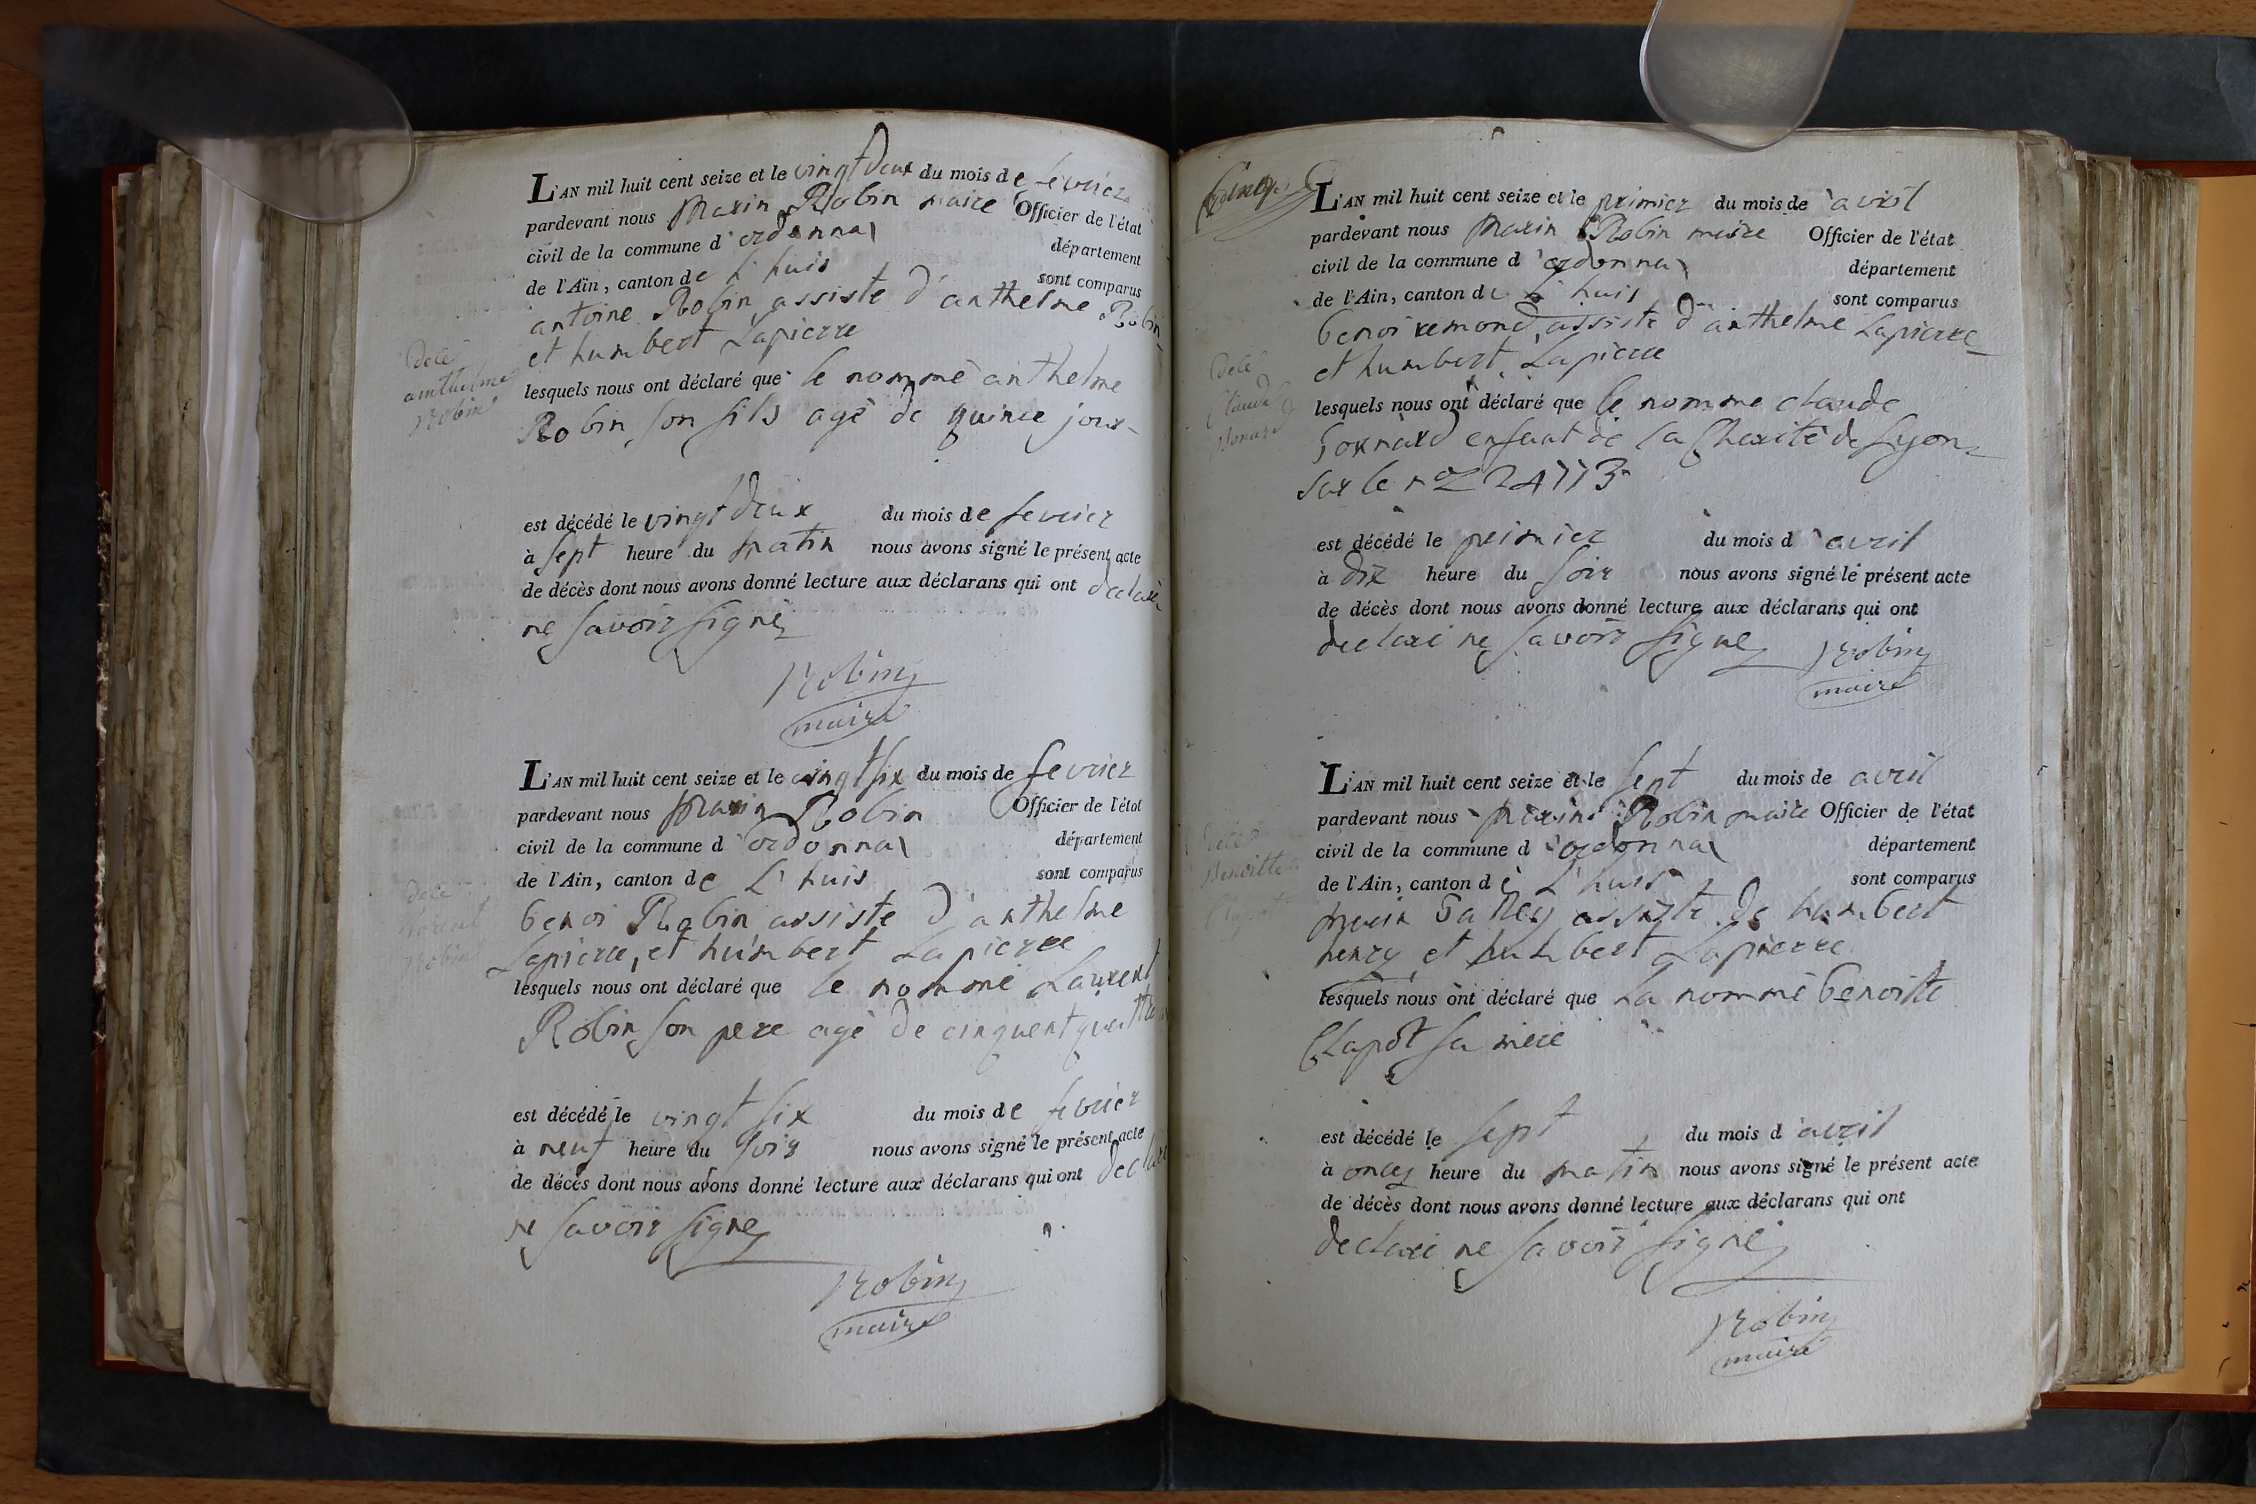 L'AN mil huit cent seize et le vingt deux du mois de fevrier
pardevant nous Marin Robin maire Officier de l'état
civil de la commune d'ordonnas département
de l'Ain, canton de L'huis sont comparus
antoine Robin assiste d'anthelme Robin
et humbert Lapierre
lesquels nous ont déclaré que le nommé anthelme
Robin son fils agé de quinze jour
decé
anthelme
Robin
est décédé le vingt deux du mois de fevrier
à sept heure du matin nous avons signé le présent acte
de décès dont nous avons donné lecture aux déclarans qui ont declaré
ne savoir signé
Robin
maire
L'AN mil huit cent seize et le vingt six du mois de fevrier
pardevant nous Marin Robin Officier de l'état
civil de la commune d'ordonnas département
de l'Ain, canton de L'huis sont comparus
benoi Robin assiste d'anthelme
Lapierre, et humbert Lapierre
lesquels nous ont déclaré que le nommé Laurent
Robin son pere agé de cinquent quattre
decé
Robin
est décédé le vingt six du mois de fevrier
à neuf heure du soir nous avons signé le présent acte
de décès dont nous avons donné lecture aux déclarans qui ont declaré
ne savoir signé
Robin
maire
L'AN mil huit cent seize et le primier du mois de avril
pardevant nous Marin Robin maire Officier de l'état
civil de la commune d'ordonnas département
de l'Ain, canton de L'huis sont comparus
benoi remond assiste d'anthelme Lapierre
et humbert Lapierre
lesquels nous ont déclaré que le nomme claude
enfant de la Charité de Lyon
sur le no
decé
Claude
est décédé le primier du mois d'avril
à dix heure du soir nous avons signé le présent acte
de décès dont nous avons donné lecture aux déclarans qui ont
declaré ne savoir signé
Robin
maire
L'AN mil huit cent seize et le sept du mois de avril
pardevant nous Marin Robin maire Officier de l'état
civil de la commune d'ordonnas département
de l'Ain, canton de L'huis sont comparus
assiste de humbert
henry et humbert Lapierre
lesquels nous ont déclaré que La nommé benoitte
Clapot sa mere
decé
benoitte
est décédé le sept du mois d'avril
à onze heure du matin nous avons signé le présent acte
de décès dont nous avons donné lecture aux déclarans qui ont
declaré ne savoir signé
Robin
maire